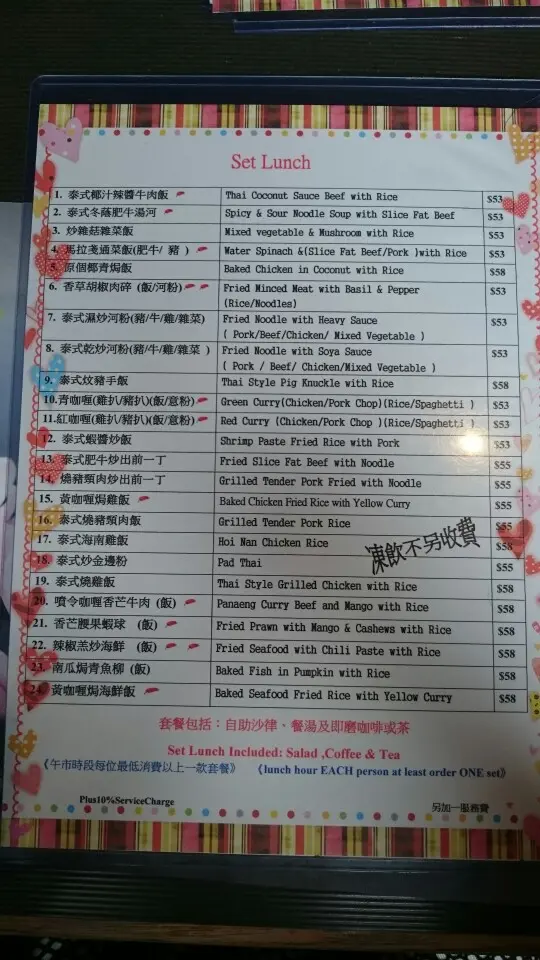 Set Lunch
1. 泰式椰汁辣醬牛肉飯 Thai Coconut Sauce Beef with Rice $53
2. 泰式冬蔭肥牛湯河 Spicy & Sour Noodle Soup with Slice Fat Beef $53
3. 炒雜菇雜菜飯 Mixed vegetable & Mushroom with Rice $53
4. 馬拉棧通菜飯(肥牛/ 豬 ) Water Spinach &(Slice Fat Beef/Pork )with Rice $53
5. 原個椰青焗飯 Baked Chicken in Coconut with Rice $58
6. 香草胡椒肉碎 (飯/河粉) Fried Minced Meat with Basil & Pepper $53
(Rice/Noodles)
7. 泰式濕炒河粉(豬/牛/雞/雜菜) Fried Noodle with Heavy Sauce $53
( Pork/Beef/Chicken/ Mixed Vegetable )
8. 泰式乾炒河粉(豬/牛/雞/雜菜 ) Fried Noodle with Soya Sauce $53
( Pork / Beef/ Chicken/Mixed Vegetable )
9. 泰式炆豬手飯 Thai Style Pig Knuckle with Rice $58
10.青咖喱(雞扒/豬扒)(飯/意粉) Green Curry(Chicken/Pork Chop)(Rice/Spaghetti ) $53
11.紅咖喱(雞扒/豬扒)(飯/意粉) Red Curry (Chicken/Pork Chop )(Rice/Spaghetti ) $53
12. 泰式蝦醬炒飯 Shrimp Paste Fried Rice with Pork $53
13. 泰式肥牛炒出前一丁 Fried Slice Fat Beef with Noodle $55
14. 燒豬頸肉炒出前一丁 Grilled Tender Pork Fried with Noodle $55
15. 黃咖喱焗雞飯 Baked Chicken Fried Rice with Yellow Curry $55
16. 泰式燒豬頸肉飯 Grilled Tender Pork Rice $55
17. 泰式海南雞飯 Hoi Nan Chicken Rice $58
18. 泰式炒金邊粉 Pad Thai $55
凍飲不另收費
19. 泰式燒雞飯 Thai Style Grilled Chicken with Rice $58
20. 噴令咖喱香芒牛肉 (飯) Panaeng Curry Beef and Mango with Rice $58
21. 香芒腰果蝦球 (飯) Fried Prawn with Mango & Cashews with Rice $58
22. 辣椒羔炒海鮮 (飯) Fried Seafood with Chili Paste with Rice $58
23. 南瓜焗青魚柳 (飯) Baked Fish in Pumpkin with Rice $58
24. 黃咖喱焗海鮮飯 Baked Seafood Fried Rice with Yellow Curry $58
套餐包括：自助沙律、餐湯及即磨咖啡或茶
Set Lunch Included: Salad ,Coffee & Tea
《午市時段每位最低消費以上一款套餐》 《lunch hour EACH person at least order ONE set》
Plus10%ServiceCharge 另加一服務費